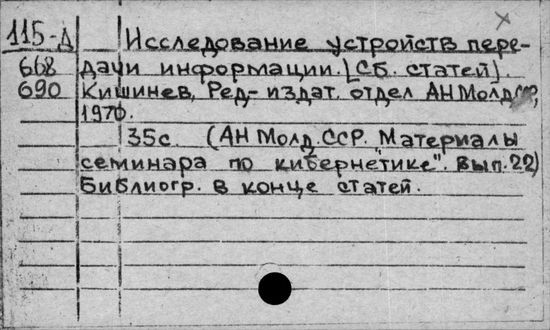 115-Д Исследование устройств пере-
668 дачи информации. [Сб. статей].
690 Кишинев, Ред-издат. отдел АН МолдССР,
1970.
35с. (АН Молд.ССР. "Материалы
семинара по кибернетике". Вып.22)
Библиогр. в конце статей.